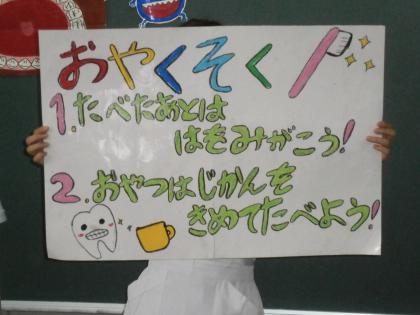 おやくそく
1.たべたあとは
はをみがこう!
2.おやつはじかんを
きめてたべよう!